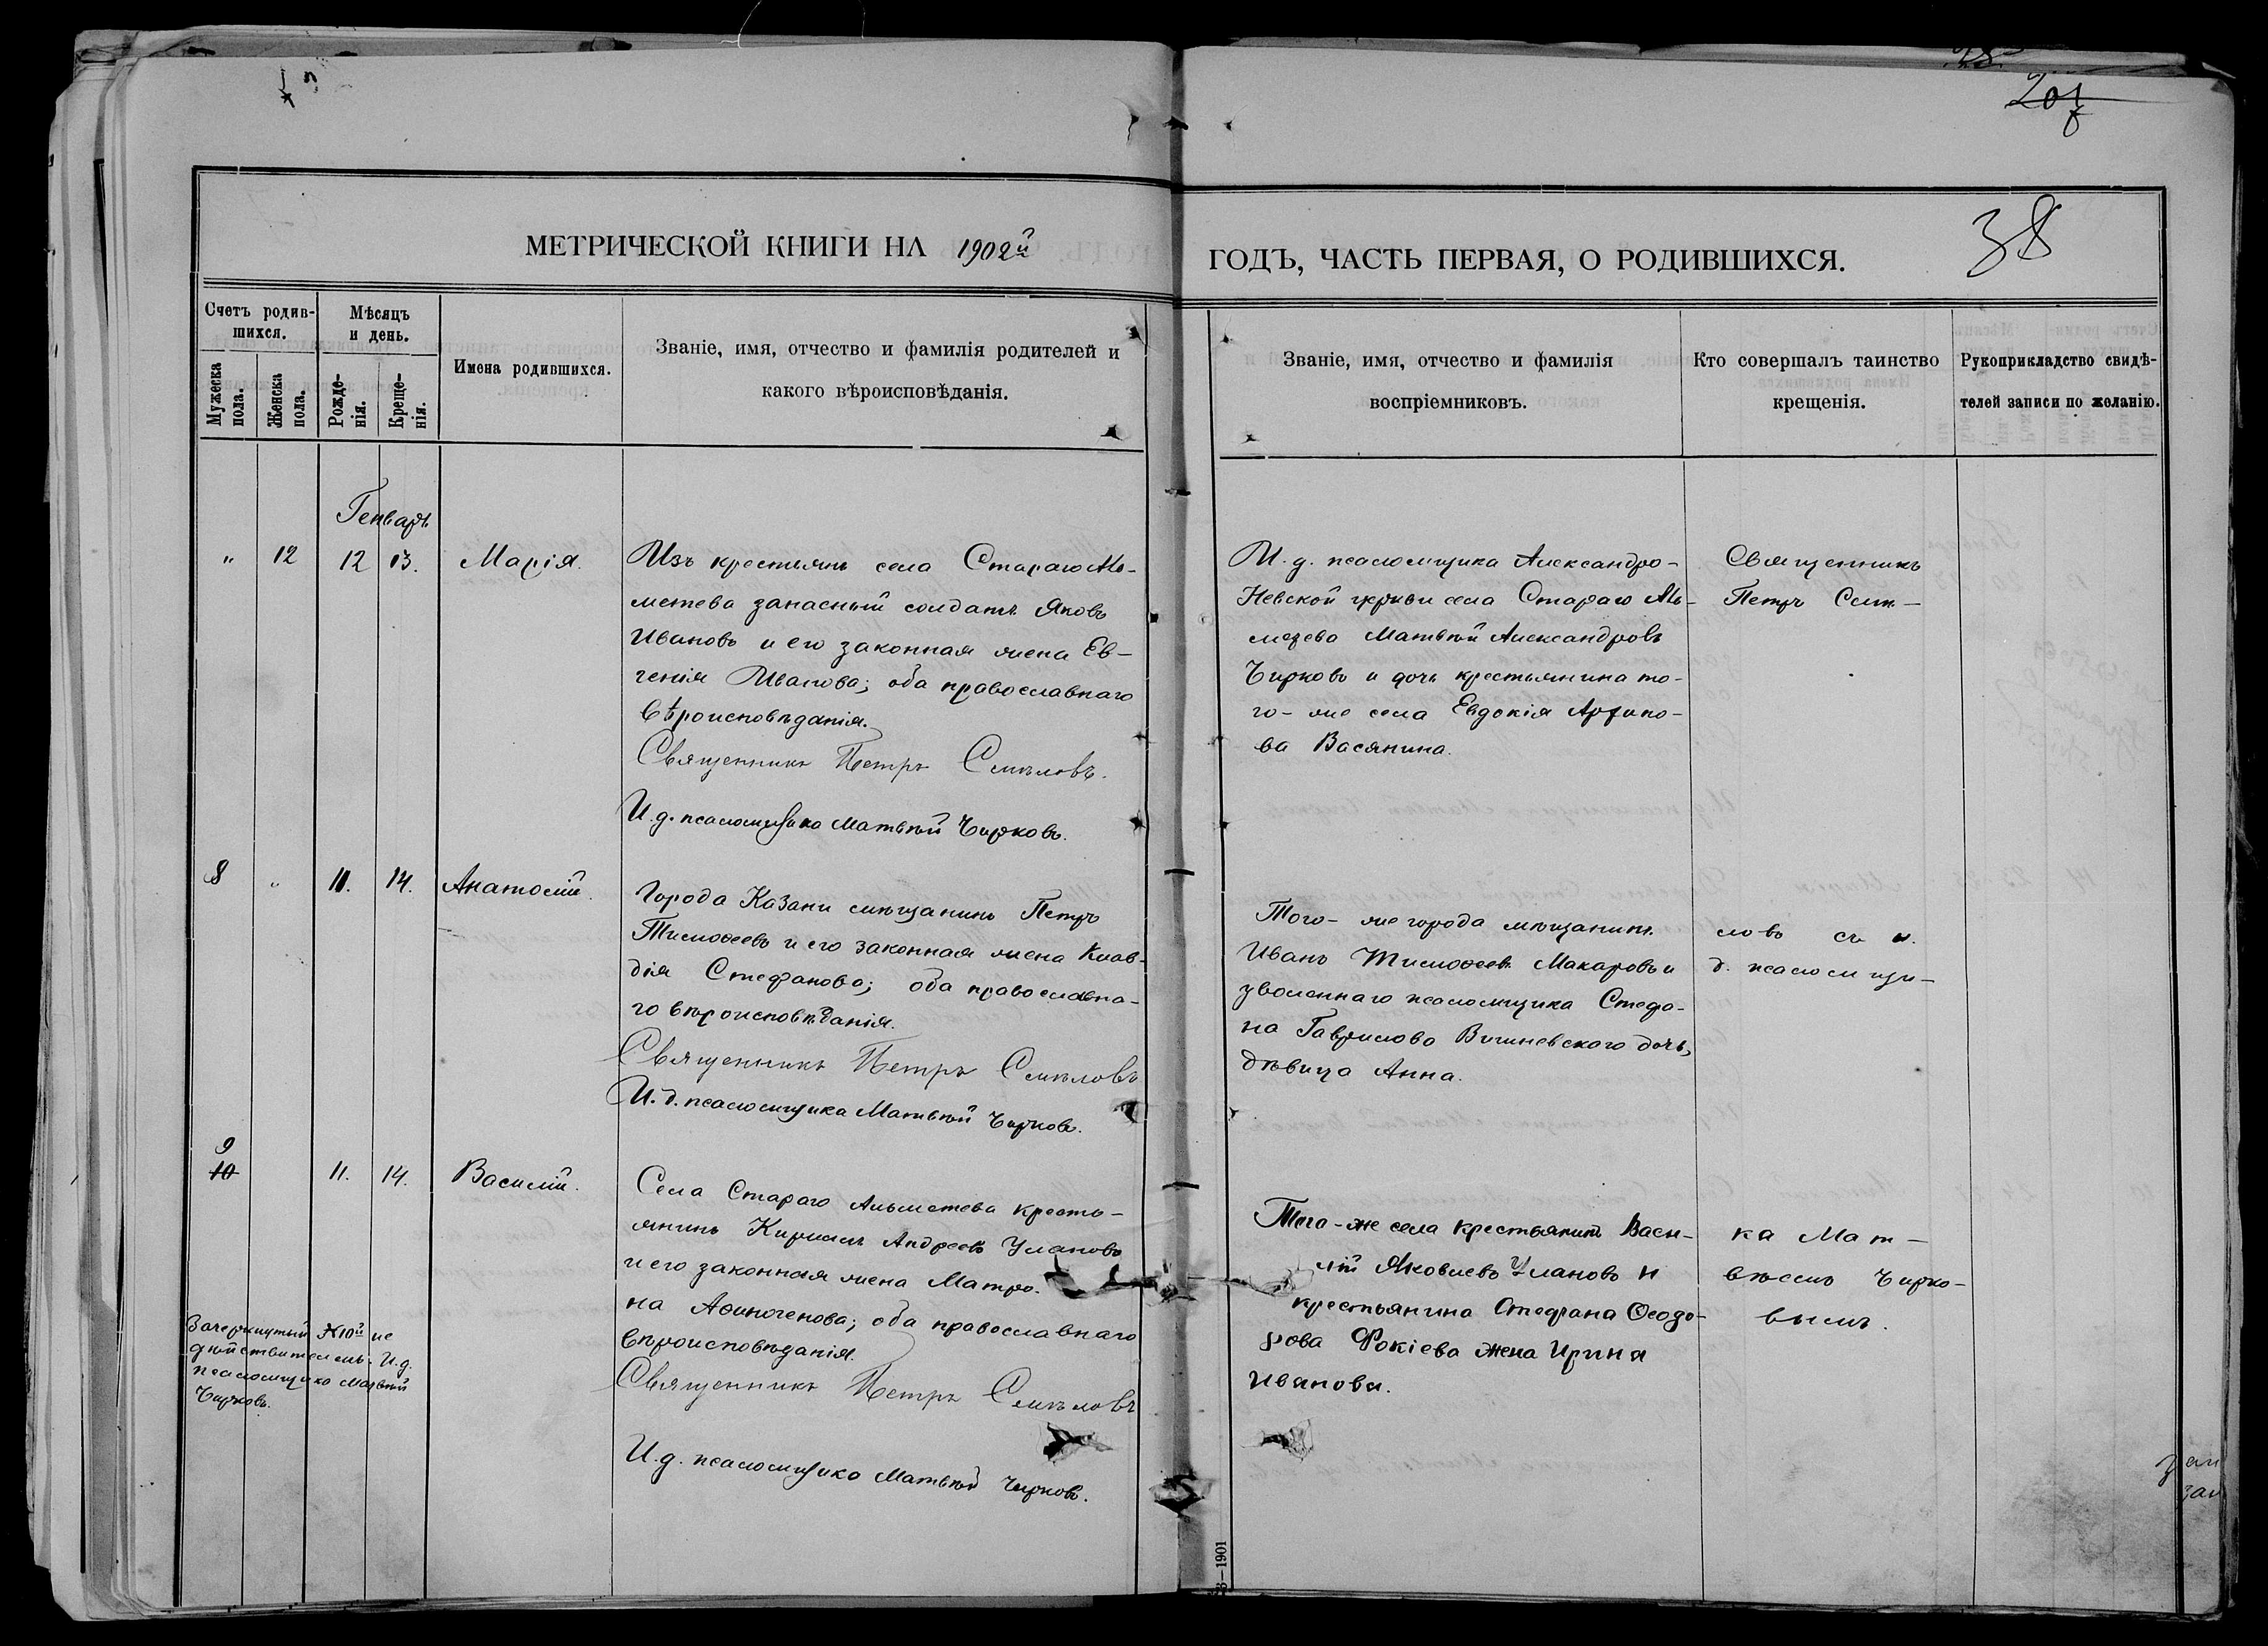 207
МЕТРИЧЕСКОЙ КНИГИ НА 1902й
ГОДЪ, ЧАСТЬ ПЕРВАЯ, О РОДИВШИХСЯ.
38
Счетъ родив-
шихся.
Мужеска
пола.
Женска
пола.
Мѣсяцъ
и день.
Рожде-
нія.
Креще-
нія.
Имена родившихся.
Званіе, имя, отчество и фамилія родителей и
какого вѣроисповѣданія.
Званіе, имя, отчество и фамилія
воспріемниковъ.
Кто совершалъ таинство
крещенія.
Рукоприкладство свидѣ-
телей записи по желанію.
Генварь
" 12 12 13. Марія.
Изъ крестьянъ села Стараго Аль-
метева запасный солдатъ Яковъ
Ивановъ и его законная жена Ев-
генія Иванова; оба православнаго
вѣроисповѣданія.
Священникъ Петръ Смѣловъ.
И.д. псаломщика Матвѣй Чирковъ.
И.д. псаломщика Александро-
Невской церкви села Стараго Аль-
метева Матвѣй Александровъ
Чирковъ и дочь крестьянина то-
го-же села Евдокія
Васянина.
Священникъ
Петръ Смѣ-
8 " 11. 14. Анатолій.
Города Казани мѣщанинъ Петръ
Тимоѳеевъ и его законная жена Клав-
дія Стефанова; оба православна-
го вѣроисповѣданія.
Священникъ Петръ Смѣловъ
И.д. псаломщика Матвѣй Чирковъ.
Того-же города мѣщанинъ
Иванъ Тимоѳеевъ Макаровъ и
уволеннаго псаломщика Стефа-
на Гаврилова Вишневскаго дочь,
дѣвица Анна.
ловъ съ и.
д. псаломщи-
9
10 11. 14. Василій.
Села Стараго Альметева кресть-
янинъ Кириллъ Андреевъ Улановъ
и его законная жена Матро-
на Аѳиногенова; оба православнаго
вѣроисповѣданія.
Священникъ Петръ Смѣловъ
И.д. псаломщика Матвѣй Чирковъ.
Того-же села крестьянинъ Васи-
лій Яковлевъ Улановъ и
крестьянина Стефана Ѳеодо-
рова Фокіева жена Ирина
Иванова.
ка Мат-
вѣемъ Чирко-
вымъ.
Зачеркнутый №10й не
дѣйствителенъ. И.д.
псаломщика Матвѣй
Чирковъ.
1901